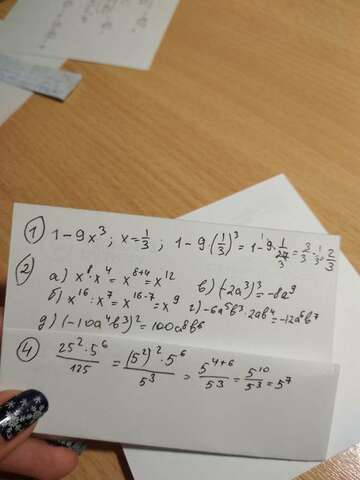 ① 1-9x³; x=1/3; 1-9·(1/3)³=1-9·1/27=3/3-1/3=2/3
② а) x⁸·x⁴=x⁸⁺⁴=x¹² в) (-2a³)³=-8a⁹
б) x¹⁶:x⁷=x¹⁶⁻⁷=x⁹ г) -6a⁵b³·2ab⁴=-12a⁶b⁷
д) (-10a⁴b³)²=100a⁸b⁶
④ 25²·5⁶/125=(5²)²·5⁶/5³=5⁴⁺⁶/5³=5¹⁰/5³=5⁷